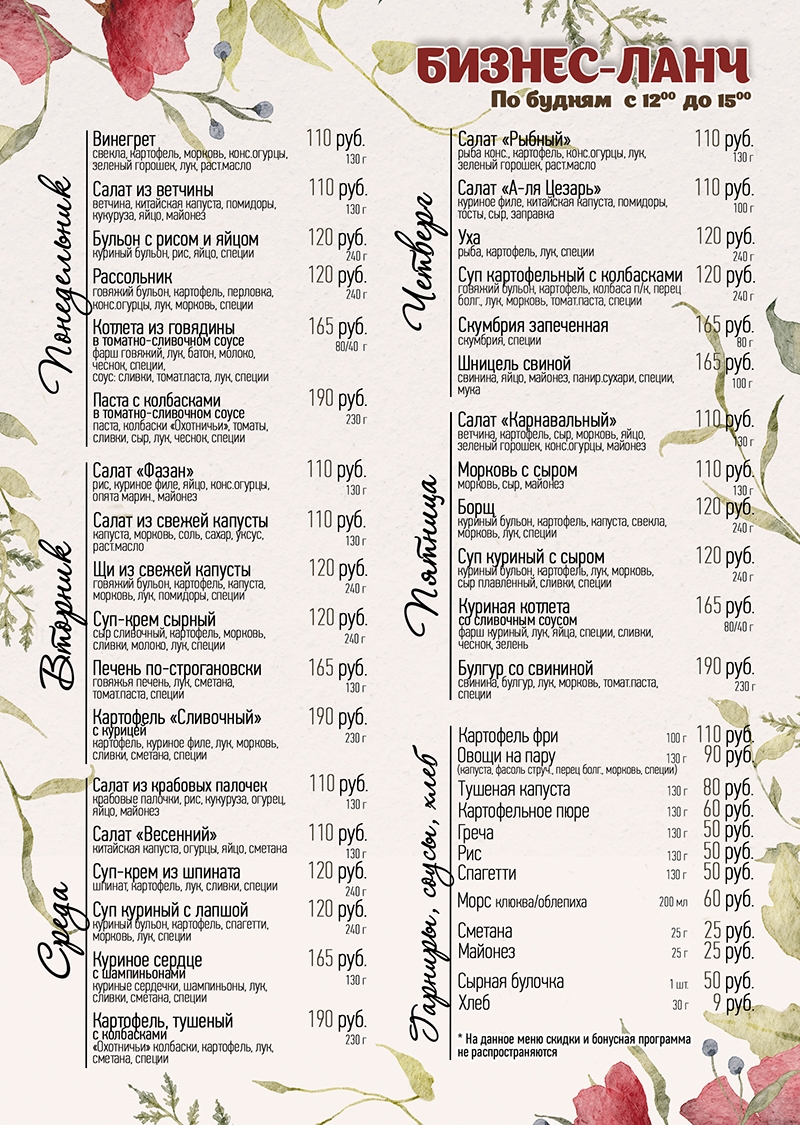 БИЗНЕС-ЛАНЧ
По будням с 12⁰⁰ до 15⁰⁰
Понедельник
Винегрет 110 руб.
свекла, картофель, морковь, конс.огурцы, 130 г
зеленый горошек, лук, раст.масло
Салат из ветчины 110 руб.
ветчина, китайская капуста, помидоры, 130 г
кукуруза, яйцо, майонез
Бульон с рисом и яйцом 120 руб.
куриный бульон, рис, яйцо, специи 240 г
Рассольник 120 руб.
говяжий бульон, картофель, перловка, 240 г
конс.огурцы, лук, морковь, специи
Котлета из говядины 165 руб.
в томатно-сливочном соусе 80/40 г
фарш говяжий, лук, батон, молоко,
чеснок, специи,
соус: сливки, томат.паста, лук, специи
Паста с колбасками 190 руб.
в томатно-сливочном соусе 230 г
паста, колбаски «Охотничьи», томаты,
сливки, сыр, лук, чеснок, специи
Вторник
Салат «Фазан» 110 руб.
рис, куриное филе, яйцо, конс.огурцы, 130 г
опята марин., майонез
Салат из свежей капусты 110 руб.
капуста, морковь, соль, сахар, уксус, 130 г
раст.масло
Щи из свежей капусты 120 руб.
говяжий бульон, картофель, капуста, 240 г
морковь, лук, помидоры, специи
Суп-крем сырный 120 руб.
сыр сливочный, картофель, морковь, 240 г
сливки, молоко, лук, специи
Печень по-строгановски 165 руб.
говяжья печень, лук, сметана, 130 г
томат.паста, специи
Картофель «Сливочный» 190 руб.
с курицей 230 г
картофель, куриное филе, лук, морковь,
сливки, сметана, специи
Среда
Салат из крабовых палочек 110 руб.
крабовые палочки, рис, кукуруза, огурец, 130 г
яйцо, майонез
Салат «Весенний» 110 руб.
китайская капуста, огурцы, яйцо, сметана 130 г
Суп-крем из шпината 120 руб.
шпинат, картофель, лук, сливки, специи 240 г
Суп куриный с лапшой 120 руб.
куриный бульон, картофель, спагетти, 240 г
морковь, лук, специи
Куриное сердце 165 руб.
с шампиньонами 130 г
куриные сердечки, шампиньоны, лук,
сливки, сметана, специи
Картофель, тушеный 190 руб.
с колбасками 230 г
«Охотничьи» колбаски, картофель, лук,
сметана, специи
Четверг
Салат «Рыбный» 110 руб.
рыба конс., картофель, конс.огурцы, лук, 130 г
зеленый горошек, раст.масло
Салат «А-ля Цезарь» 110 руб.
куриное филе, китайская капуста, помидоры, 100 г
тосты, сыр, заправка
Уха 120 руб.
рыба, картофель, лук, специи 240 г
Суп картофельный с колбасками 120 руб.
говяжий бульон, картофель, колбаса п/к, перец 240 г
болг., лук, морковь, томат.паста, специи
Скумбрия запеченная 165 руб.
скумбрия, специи 80 г
Шницель свиной 165 руб.
свинина, яйцо, майонез, панир.сухари, специи, 100 г
мука
Пятница
Салат «Карнавальный» 110 руб.
ветчина, картофель, сыр, морковь, яйцо, 130 г
зеленый горошек, конс.огурцы, майонез
Морковь с сыром 110 руб.
морковь, сыр, майонез 130 г
Борщ 120 руб.
куриный бульон, картофель, капуста, свекла, 240 г
морковь, лук, специи
Суп куриный с сыром 120 руб.
куриный бульон, картофель, лук, морковь, 240 г
сыр плавленный, сливки, специи
Куриная котлета 165 руб.
со сливочным соусом 80/40 г
фарш куриный, лук, яйца, специи, сливки,
чеснок, зелень
Булгур со свининой 190 руб.
свинина, булгур, лук, морковь, томат.паста, 230 г
специи
Гарниры, соусы, хлеб
Картофель фри 100 г 110 руб.
Овощи на пару 130 г 90 руб.
(капуста, фасоль струч., перец болг., морковь, специи)
Тушеная капуста 130 г 80 руб.
Картофельное пюре 130 г 60 руб.
Греча 130 г 50 руб.
Рис 130 г 50 руб.
Спагетти 130 г 50 руб.
Морс клюква/облепиха 200 мл 60 руб.
Сметана 25 г 25 руб.
Майонез 25 г 25 руб.
Сырная булочка 1 шт. 50 руб.
Хлеб 30 г 9 руб.
* На данное меню скидки и бонусная программа
не распространяются